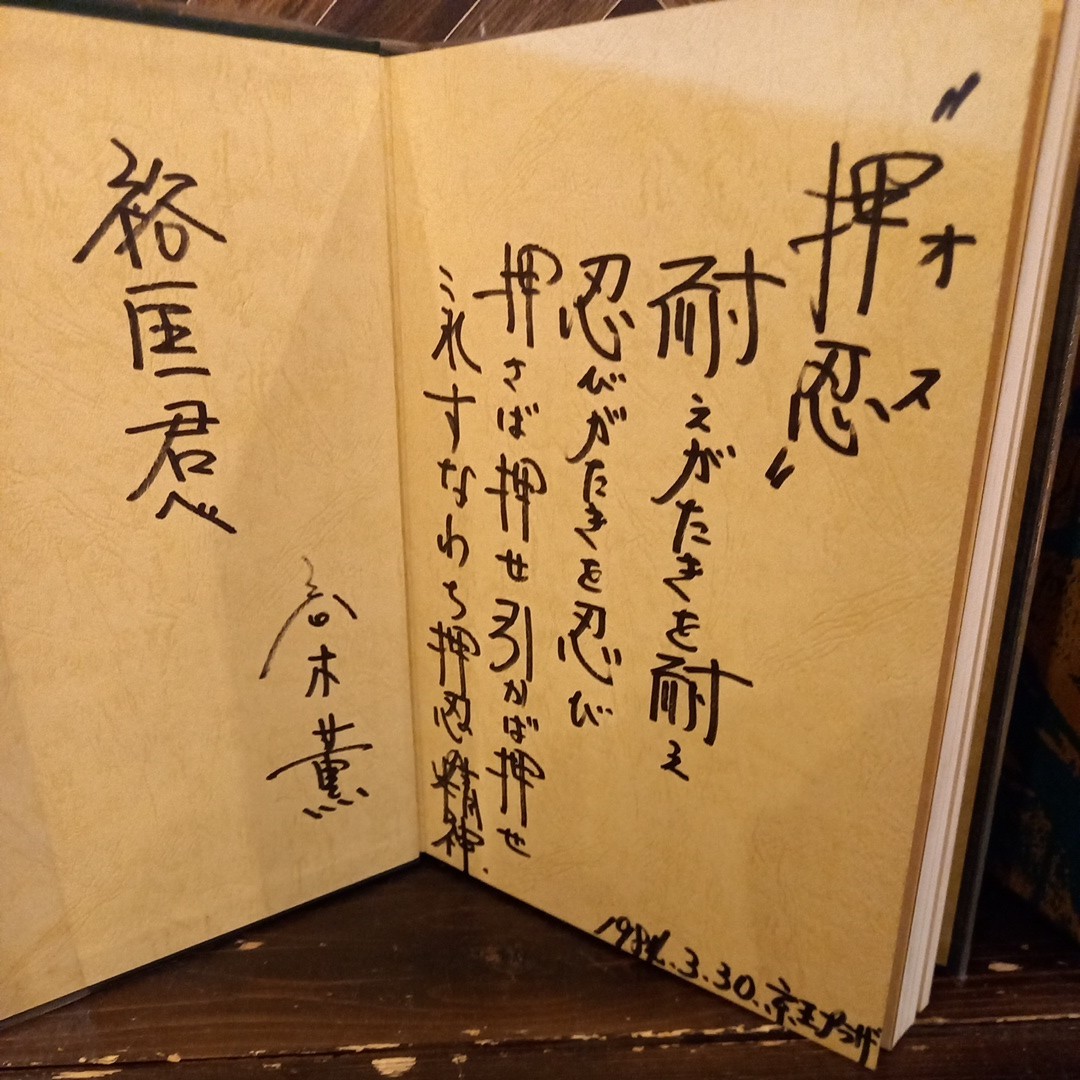 "押忍"
オス
耐えがたきを耐え
忍びがたきを忍び
押さば押せ引かば押せ
これすなわち押忍精神.
3.30.京王プラザ
裕匡君へ
木薫